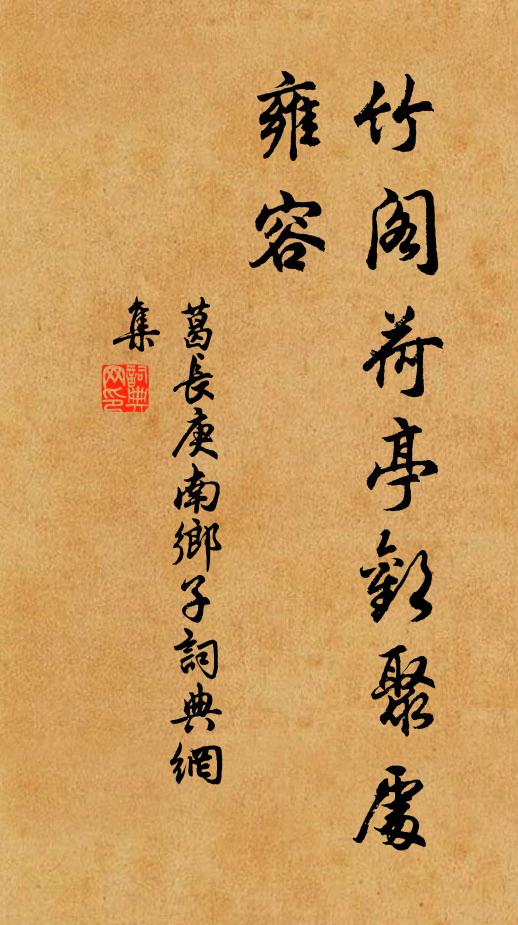 竹阁荷亭歡聚處
雍容
葛長庚南鄉子詞典網
集
詞典
网印